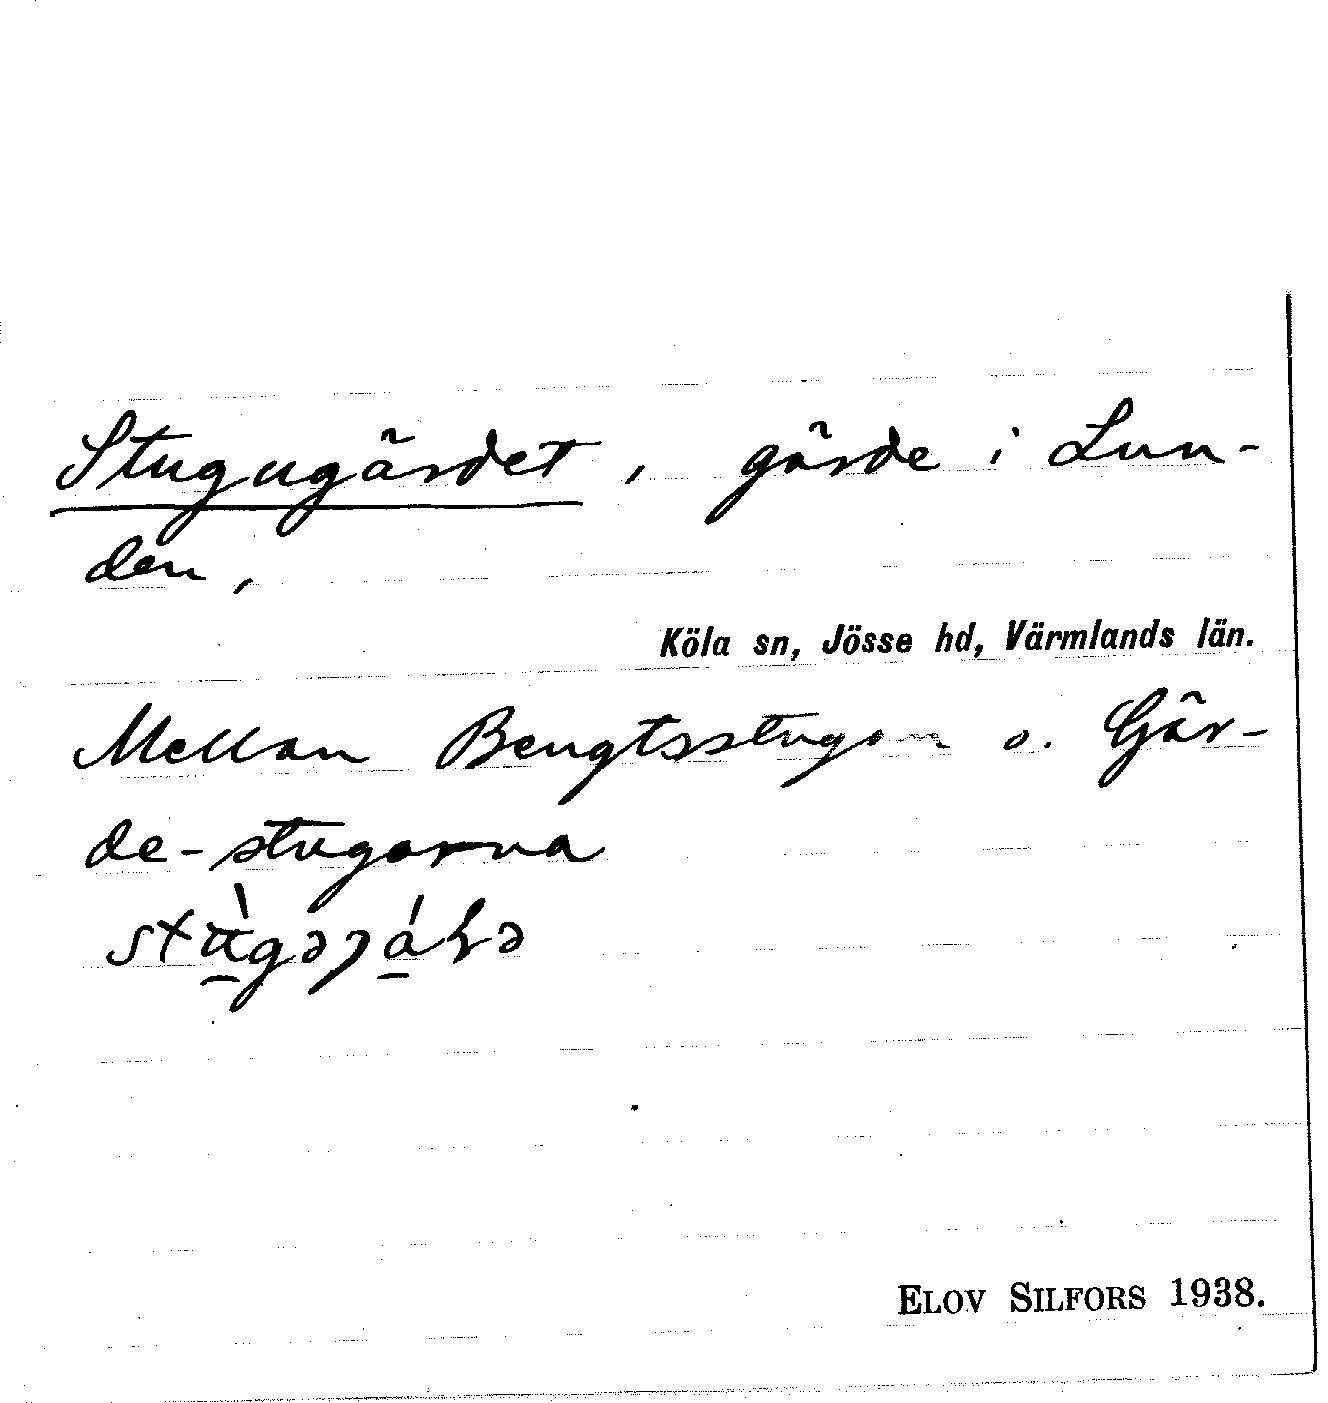 Stugugärdet, gärde i Lun-
den,
Köla sn, Jösse hd, Värmlands län.
Mellan Bengtsstugan o. Gär-
de-stugorna
ELOV SILFORS 1938.